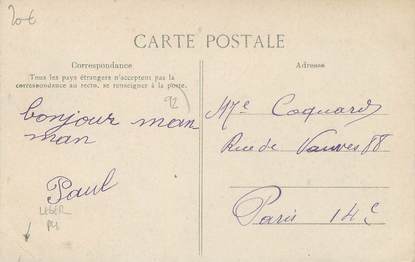 20€
CARTE POSTALE
Correspondance
Tous les pays étrangers n'acceptent pas la
correspondance au recto, se renseigner à la poste.
92
bonjour man
man
Paul
LEGER
Adresse
Mme Coquard
Rue de Vanves 88
Paris 14e